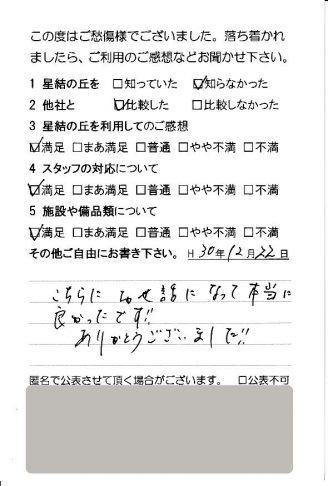 この度はご愁傷様でございました。落ち着かれ
ましたら、ご利用のご感想などお聞かせ下さい。
1 星結の丘を □知っていた ☑知らなかった
2 他社と ☑比較した □比較しなかった
3 星結の丘を利用してのご感想
☑満足 □まあ満足 □普通 □やや不満 □不満
4 スタッフの対応について
☑満足 □まあ満足 □普通 □やや不満 □不満
5 施設や備品類について
☑満足 □まあ満足 □普通 □やや不満 □不満
その他ご自由にお書き下さい。 H 30年12月22日
こちらにお世話になって本当に
良かったです!!
ありがとうございました!!
匿名で公表させて頂く場合がございます。 □公表不可